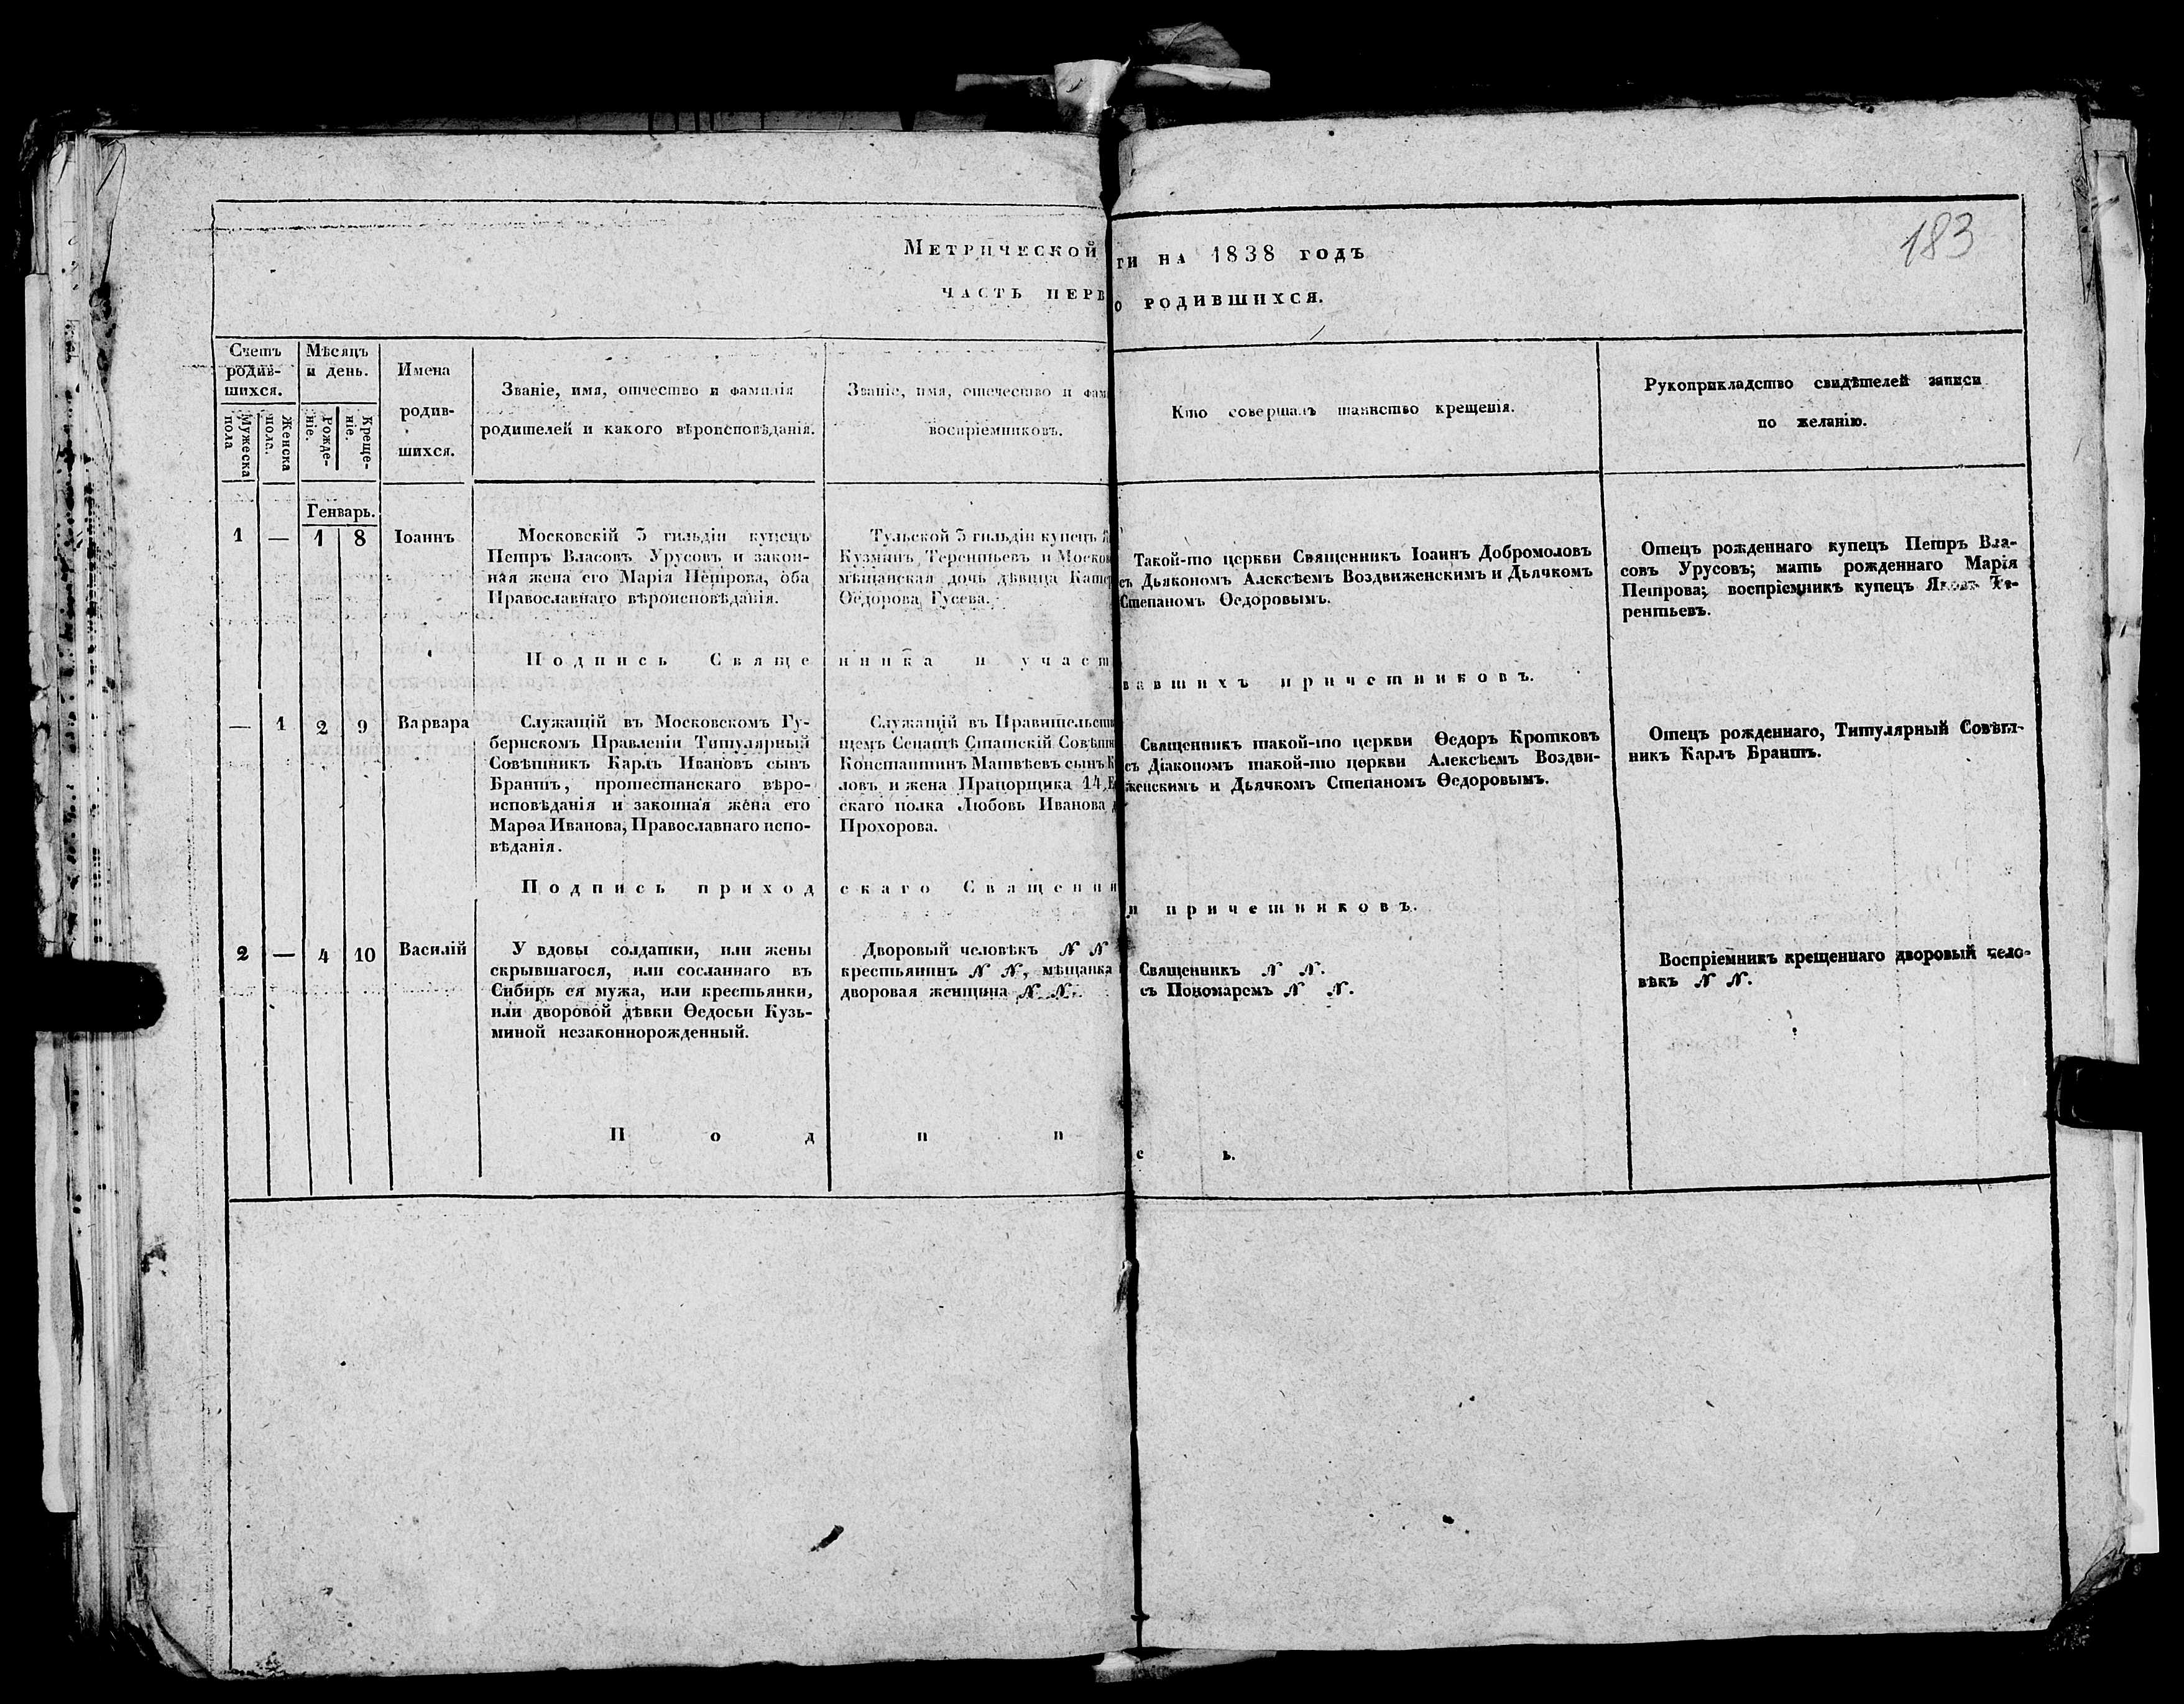 183
МЕТРИЧЕСКОЙ
ТИ НА 1838 ГОДЪ
ЧАСТЬ ПЕРВ
О РОДИВШИХСЯ.
Счетъ
родив-
шихся.
Мужеска
пола
Женска
пола.
Мѣсяцъ
и день.
Рожде-
ніе.
Креще-
ніе.
Имена
родив-
шихся.
Званіе, имя, отчество и фамилія
родителей и какого вѣроисповѣданія.
Званіе, имя, отечество и фам
воспріемниковъ.
Кто совершалъ таинство крещенія.
Рукоприкладство свидѣтелей записи
по желанію.
Генварь.
1 — 1 8 Іоаннъ
Московскій 3 гильдіи купецъ
Петръ Власовъ Урусовъ и закон-
ная жена его Марія Петрова, оба
Православнаго вѣроисповѣданія.
Тульской 3 гильдіи купецъ Я
Кузминъ Терентьевъ и Москов
мѣщанская дочь дѣвица Катер
Ѳедорова Гусева.
Такой-то церкви Священникъ Іоаннъ Добромоловъ
съ Дьякономъ Алексѣемъ Воздвиженскимъ и Дьячкомъ
Степаномъ Ѳедоровымъ.
Отецъ рожденнаго купецъ Петръ Вла-
совъ Урусовъ; мать рожденнаго Марія
Петрова; воспріемникъ купецъ Яковъ Те-
рентьевъ.
Подпись Свяще нника и участ
вавшихъ причетниковъ.
— 1 2 9 Варвара
Служащій въ Московскомъ Гу-
бернскомъ Правленіи Титулярный
Совѣтникъ Карлъ Ивановъ сынъ
Брантъ, протестанскаго вѣро-
исповѣданія и законная жена его
Марѳа Иванова, Православнаго испо-
вѣданія.
Служащій въ Правительств
щемъ Сенатѣ Статскій Совѣтн
Константинъ Матвѣевъ сынъ К
ловъ и жена Прапорщика 14 Е
скаго полка Любовь Иванова д
Прохорова.
Священникъ такой-то церкви Ѳедоръ Кротковъ
съ Діакономъ такой-то церкви Алексѣемъ Воздви-
женскимъ и Дьячкомъ Степаномъ Ѳедоровымъ.
Отецъ рожденнаго, Титулярный Совѣт-
никъ Карлъ Брантъ.
Подпись приход скаго Священни
и причетниковъ.
2 — 4 10 Василій
У вдовы солдатки, или жены
скрывшагося, или сосланнаго въ
Сибирь ея мужа, или крестьянки,
или дворовой дѣвки Ѳедосьи Кузь-
миной незаконнорожденный.
Дворовый человѣкъ N N
крестьянинъ N N, мѣщанка
дворовая женщина N N.
Священникъ N N.
съ Пономаремъ N N.
Воспріемникъ крещеннаго дворовый чело-
вѣкъ N N.
П о д п и
с ь.